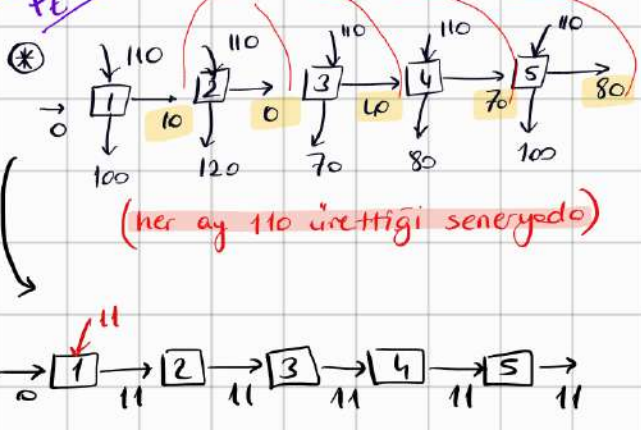 Pt
* 110 110 110 110 110
0 1 10 2 0 3 40 4 70 5 80
100 120 70 80 100
(her ay 110 ürettiği seneryoda)
11
0 1 11 2 11 3 11 4 11 5 11